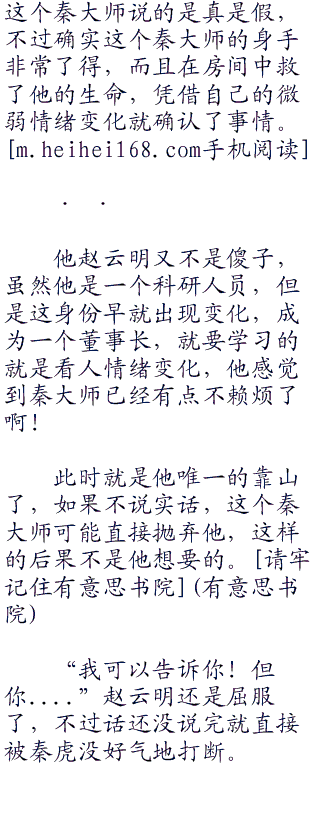 这个秦大师说的是真是假，
不过确实这个秦大师的身手
非常了得，而且在房间中救
了他的生命，凭借自己的微
弱情绪变化就确认了事情。
[m.heihei168.com手机阅读]
. .
他赵云明又不是傻子，
虽然他是一个科研人员，但
是这身份早就出现变化，成
为一个董事长，就要学习的
就是看人情绪变化，他感觉
到秦大师已经有点不赖烦了
啊！
此时就是他唯一的靠山
了，如果不说实话，这个秦
大师可能直接抛弃他，这样
的后果不是他想要的。[请牢
记住有意思书院](有意思书
院)
“我可以告诉你！但
你....”赵云明还是屈服
了，不过话还没说完就直接
被秦虎没好气地打断。